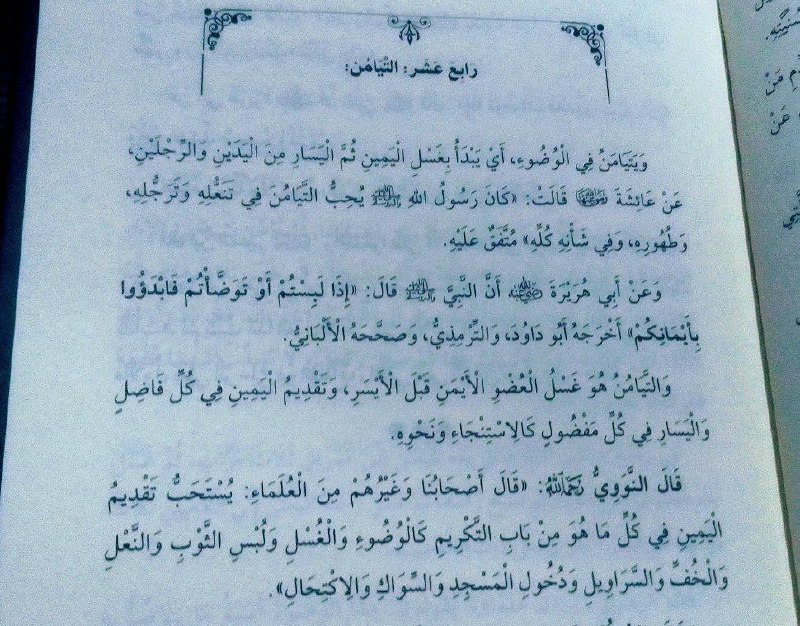 رَابِعَ عَشَرَ: التَّيَامُن:
وَيَتَيَامَنُ فِي الْوُضُوءِ، أَيْ يَبْدَأُ بِغَسْلِ الْيَمِينِ ثُمَّ الْيَسَارِ مِنَ الْيَدَيْنِ وَالرِّجْلَيْنِ،
عَنْ عَائِشَةَ رضي الله عنها قَالَتْ: «كَانَ رَسُولُ اللهِ ﷺ يُحِبُّ التَّيَامُنَ فِي تَنَعُّلِهِ وَتَرَجُّلِهِ،
وَطُهُورِهِ، وَفِي شَأْنِهِ كُلِّهِ» مُتَّفَقٌ عَلَيْهِ.
وَعَنْ أَبِي هُرَيْرَةَ رضي الله عنه أَنَّ النَّبِيَّ ﷺ قَالَ: «إِذَا لَبِسْتُمْ أَوْ تَوَضَّأْتُمْ فَابْدَؤُوا
بِأَيْمَانِكُمْ» أَخْرَجَهُ أَبُو دَاوُدَ، وَالتِّرْمِذِيُّ، وَصَحَّحَهُ الْأَلْبَانِيُّ.
وَالتَّيَامُنُ هُوَ غَسْلُ الْعُضْوِ الْأَيْمَنِ قَبْلَ الْأَيْسَرِ، وَتَقْدِيمُ الْيَمِينِ فِي كُلِّ فَاضِلٍ
وَالْيَسَارِ فِي كُلِّ مَفْضُولٍ كَالِاسْتِنْجَاءِ وَنَحْوِهِ.
قَالَ النَّوَوِيُّ رحمه الله: «قَالَ أَصْحَابُنَا وَغَيْرُهُمْ مِنَ الْعُلَمَاءِ: يُسْتَحَبُّ تَقْدِيمُ
الْيَمِينِ فِي كُلِّ مَا هُوَ مِنْ بَابِ التَّكْرِيمِ كَالْوُضُوءِ وَالْغُسْلِ وَلُبْسِ الثَّوْبِ وَالنَّعْلِ
وَالْخُفِّ وَالسَّرَاوِيلِ وَدُخُولِ الْمَسْجِدِ وَالسِّوَاكِ وَالِاكْتِحَالِ».